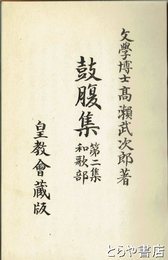 文學博士高瀨武次郎著
鼓腹集
第二集
和歌部
皇教會藏版
とらや書店